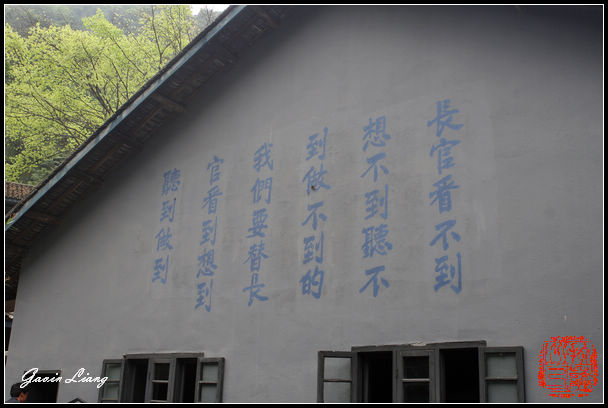 長官看不到
想不到聽不
到做不到的
我們要替長
官看到想到
聽到做到
Gavin Liang